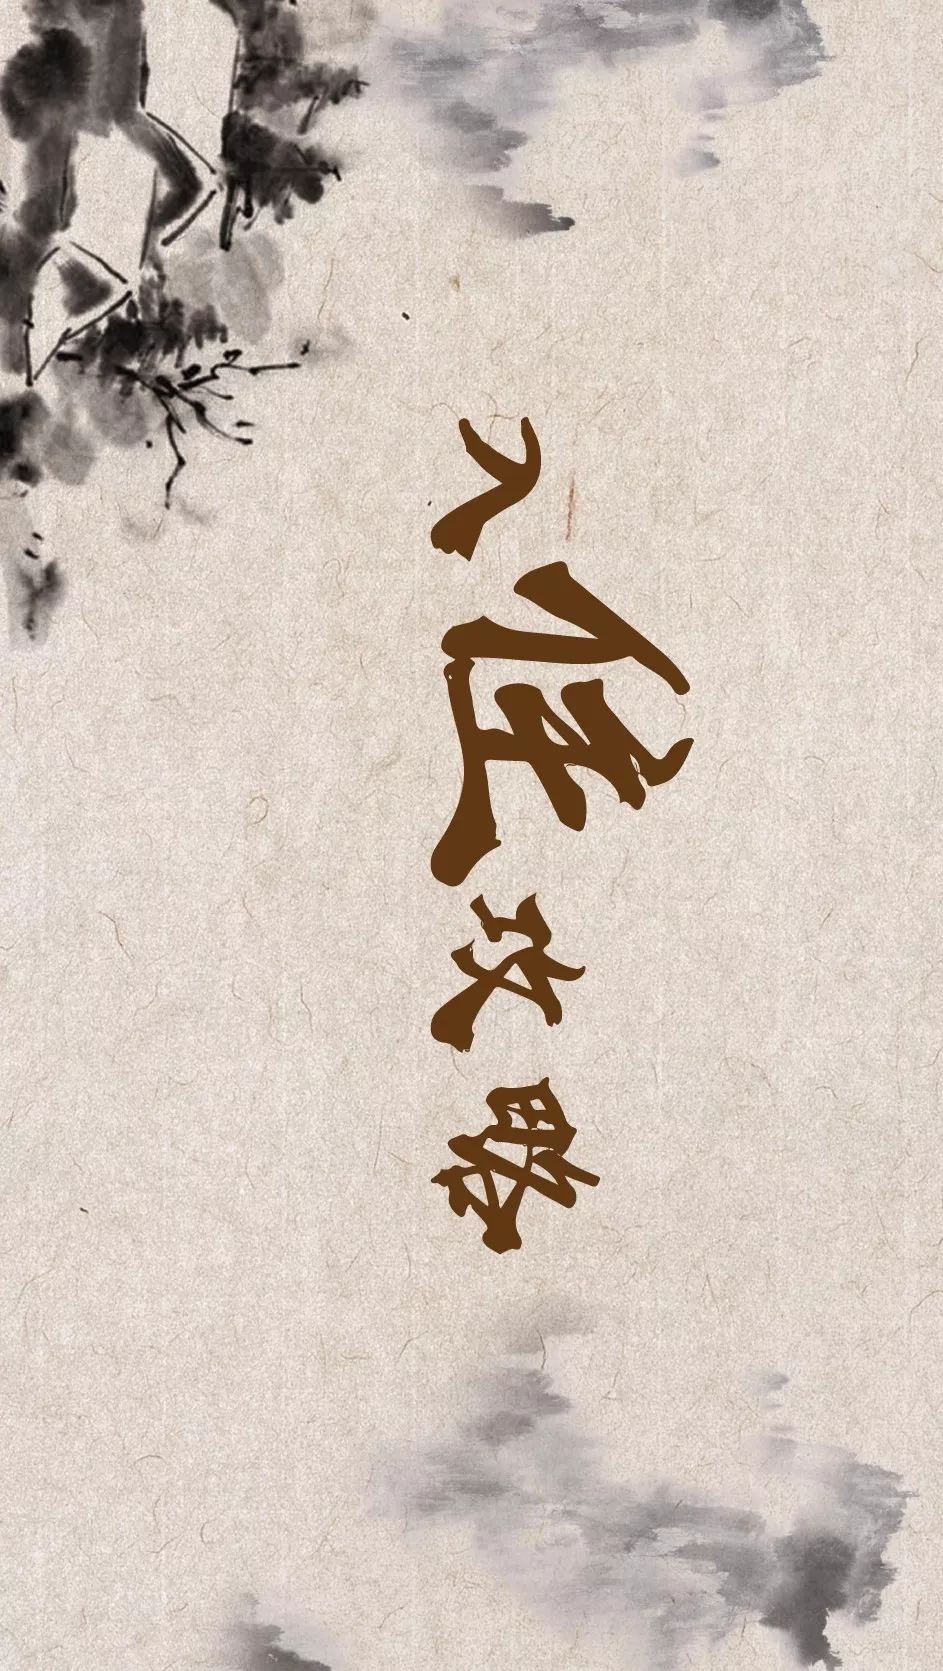 入住攻略